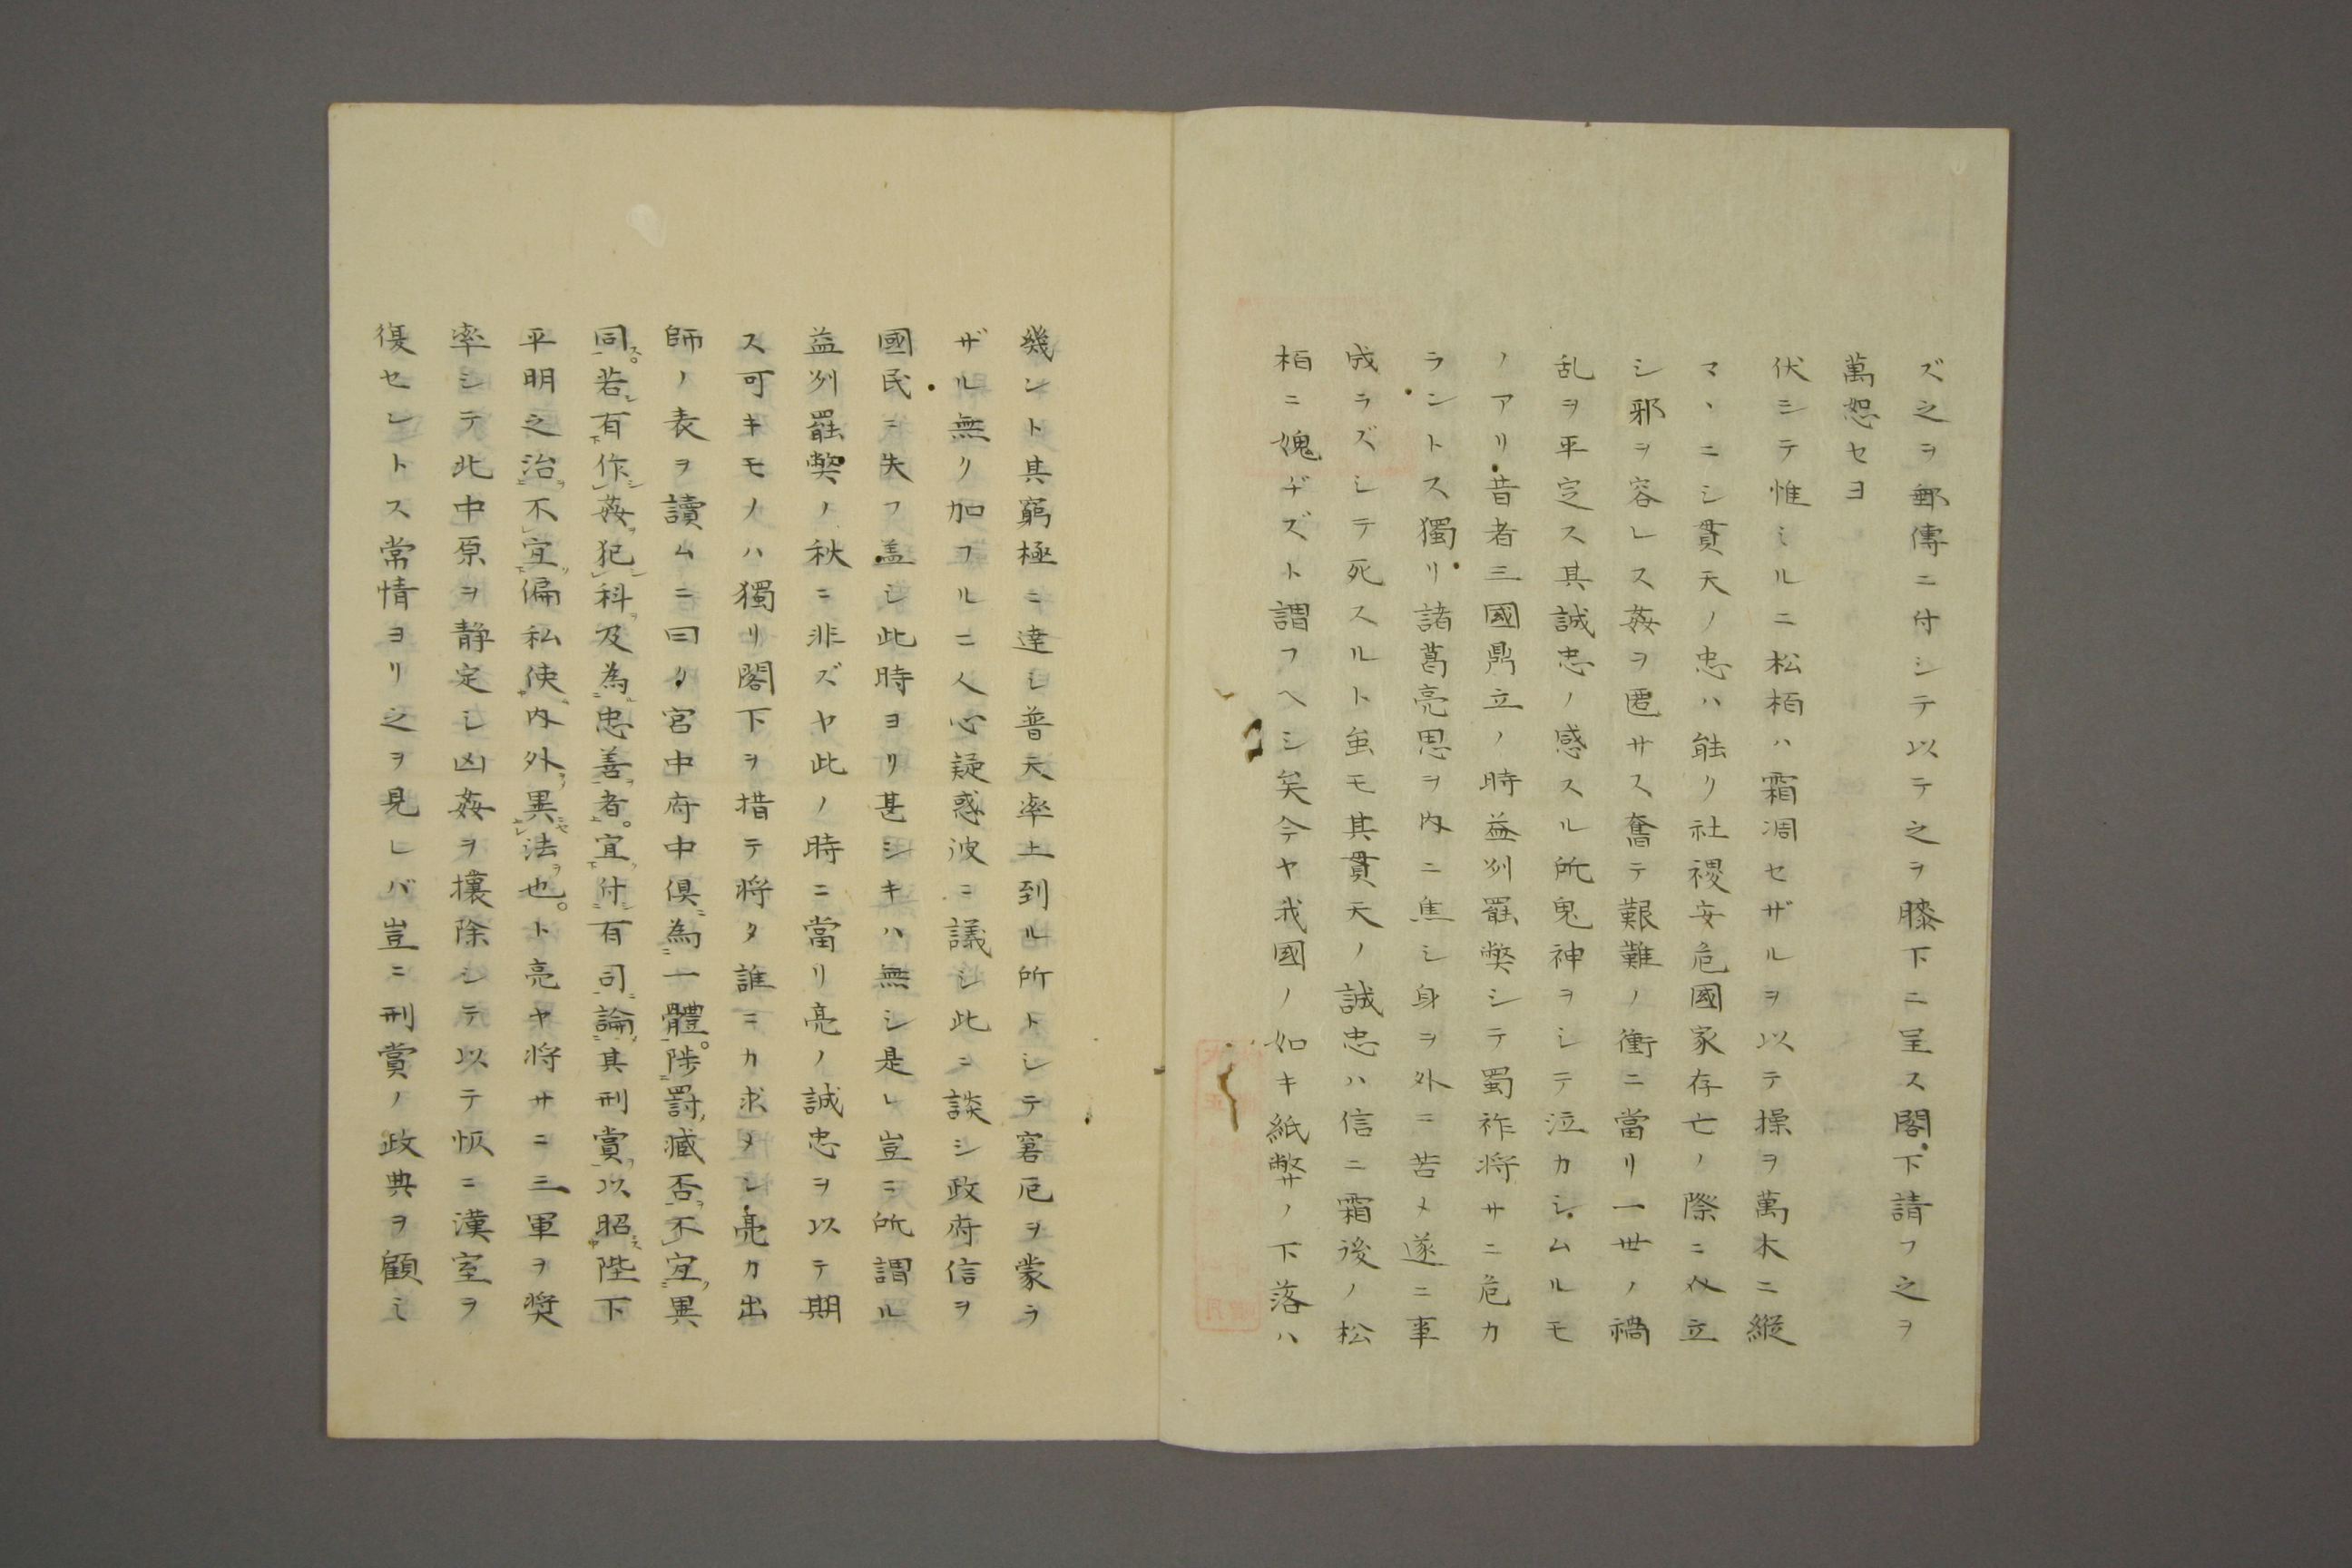 ズ之ヲ郵傳ニ付シテ以テ之ヲ膝下ニ呈ス閣下請フ之ヲ
萬恕セヨ
伏シテ惟ミルニ松栢ハ霜凋セザルヲ以テ操ヲ萬木ニ縦
マヽニシ貫天ノ忠ハ能ク社稷安危國家存亡ノ際ニ立
シ邪ヲ容レス姦ヲ匿サス奮テ艱難ノ衝ニ當リ一世ノ禍
乱ヲ平定ス其誠忠ノ感スル所鬼神ヲシテ泣カシムルモ
ノアリ昔者三國鼎立ノ時益州罷弊シテ蜀祚将サニ危カ
ラントス獨リ諸葛亮思ヲ内ニ焦シ身ヲ外ニ苦メ遂ニ事
成ラズシテ死スルト虽モ其貫天ノ誠忠ハ信ニ霜後ノ松
栢ニ愧ヂズト謂フヘシ矣今ヤ我國ノ如キ紙弊ノ下落ハ
幾ント其窮極ニ達シ普天率土到ル所トシテ窘厄ヲ蒙ラ
ザル無ク加フルニ人心疑惑彼ニ議シ此ニ談シ政府信ヲ
國民ニ失フ盖シ此時ヨリ甚シキハ無シ是レ豈ニ所謂ル
益州罷弊ノ秋ニ非ズヤ此ノ時ニ當リ亮ノ誠忠ヲ以テ期
ス可キモノハ獨リ閣下ヲ措テ将タ誰ニカ求メン亮カ出
師ノ表ヲ讀ムニ曰ク宮中府中倶為一體。陟罰臧否不宜異
同。若有作姦犯科及為忠善者。宜付有司論其刑賞以昭陛下
平明之治不宜偏私使内外異法也。ト亮ヤ将サニ三軍ヲ奨
率シテ北中原ヲ静定シ凶姦ヲ攘除シテ以テ恢ニ漢室ヲ
復セントス常情ヨリ之ヲ見レバ豈ニ刑賞ノ政典ヲ顧ミ